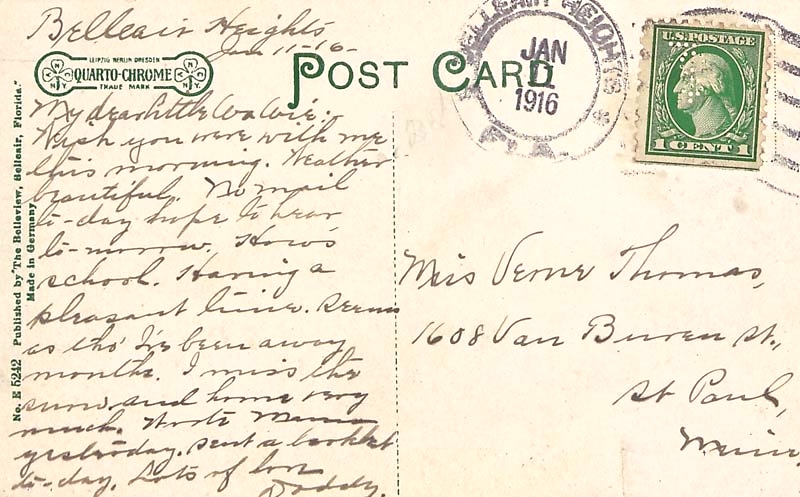 Belleair Heights
Jan 11-16-
LEIPZIG BERLIN DRESDEN
QUARTO-CHROME
TRADE MARK
POST CARD
BELLEAIR HEIGHTS
JAN
11
1916
FLA.
U.S. POSTAGE
1 CENT 1
My dear little
Wish you were with me
this morning. Weather
beautiful. No mail
to-day hope to hear
to-morrow. How's
school. Having a
pleasant time. Seems
as tho' I've been away
months. I miss the
and home very
much. Wrote Mama
yesterday. Sent a booklet
to-day. Lots of love
Daddy.
Miss Verne Thomas,
1608 Van Buren St.,
St Paul,
Minn.
No. E 5242 Published by "The Belleview, Belleair, Florida."
Made in Germany